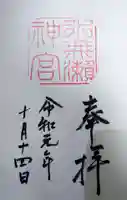 奉拝
水無瀬
神宮
令和元年
十月十四日